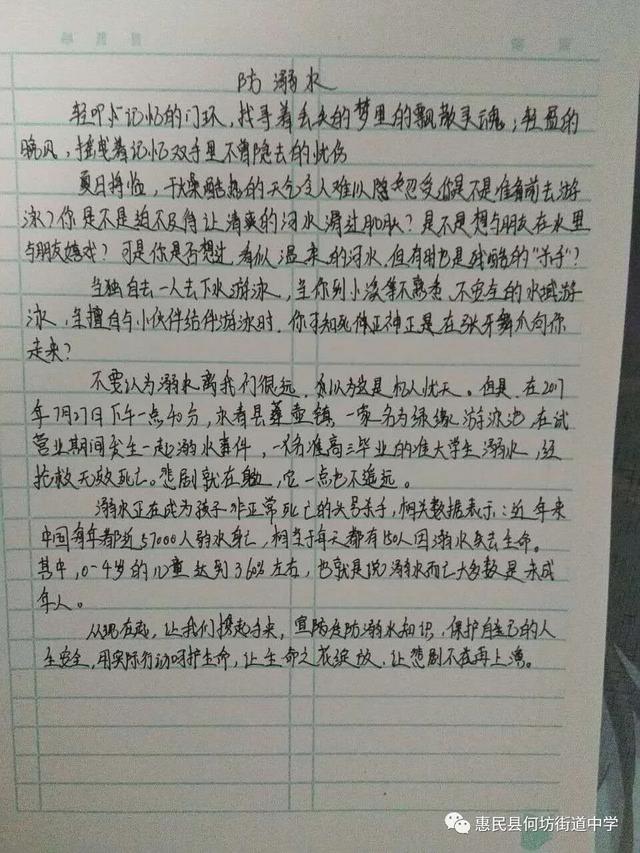 防溺水
轻叩记忆的门环，找寻着丢失的梦里的飘散灵魂；轻盈的
晚风，摇曳着记忆双手里不曾隐去的忧伤
夏日将临，干燥酷热的天气令人难以忍受你是不是准备前去游
泳？你是不是迫不及待让清爽的河水滑过肌肤？是不是想与朋友在水里
与朋友嬉戏？可是你是否想过，看似温柔的河水，但有时也是残酷的“杀手”？
当独自去一人去下水游泳，当你到小溪等不熟悉，不安全的水域游
泳，当擅自与小伙伴结伴游泳时，你不知死神正神正是在张牙舞爪向你
走来？
不要认为溺水离我们很远，你以为这是杞人忧天。但是，在2017
年7月27日下午一点40分，永春县蓬壶镇，一家名为绿缘游泳池，在试
营业期间发生一起溺水事件，一名准高三毕业的准大学生溺水，经
抢救无效死亡。悲剧就在身边，它一点也不遥远。
溺水正在成为孩子非正常死亡的头号杀手，相关数据表示：近年来
中国每年都近57000人溺水身亡，相当于每天都有150人因溺水失去生命。
其中，0-4岁的儿童达到3.60%左右，也就是说溺水而亡大多数是未成
年人。
从现在起，让我们携起手来，宣防溺水知识，保护自己的人
生安全，用实际行动呵护生命，让生命之花绽放，让悲剧不在再上演。
惠民县何坊街道中学